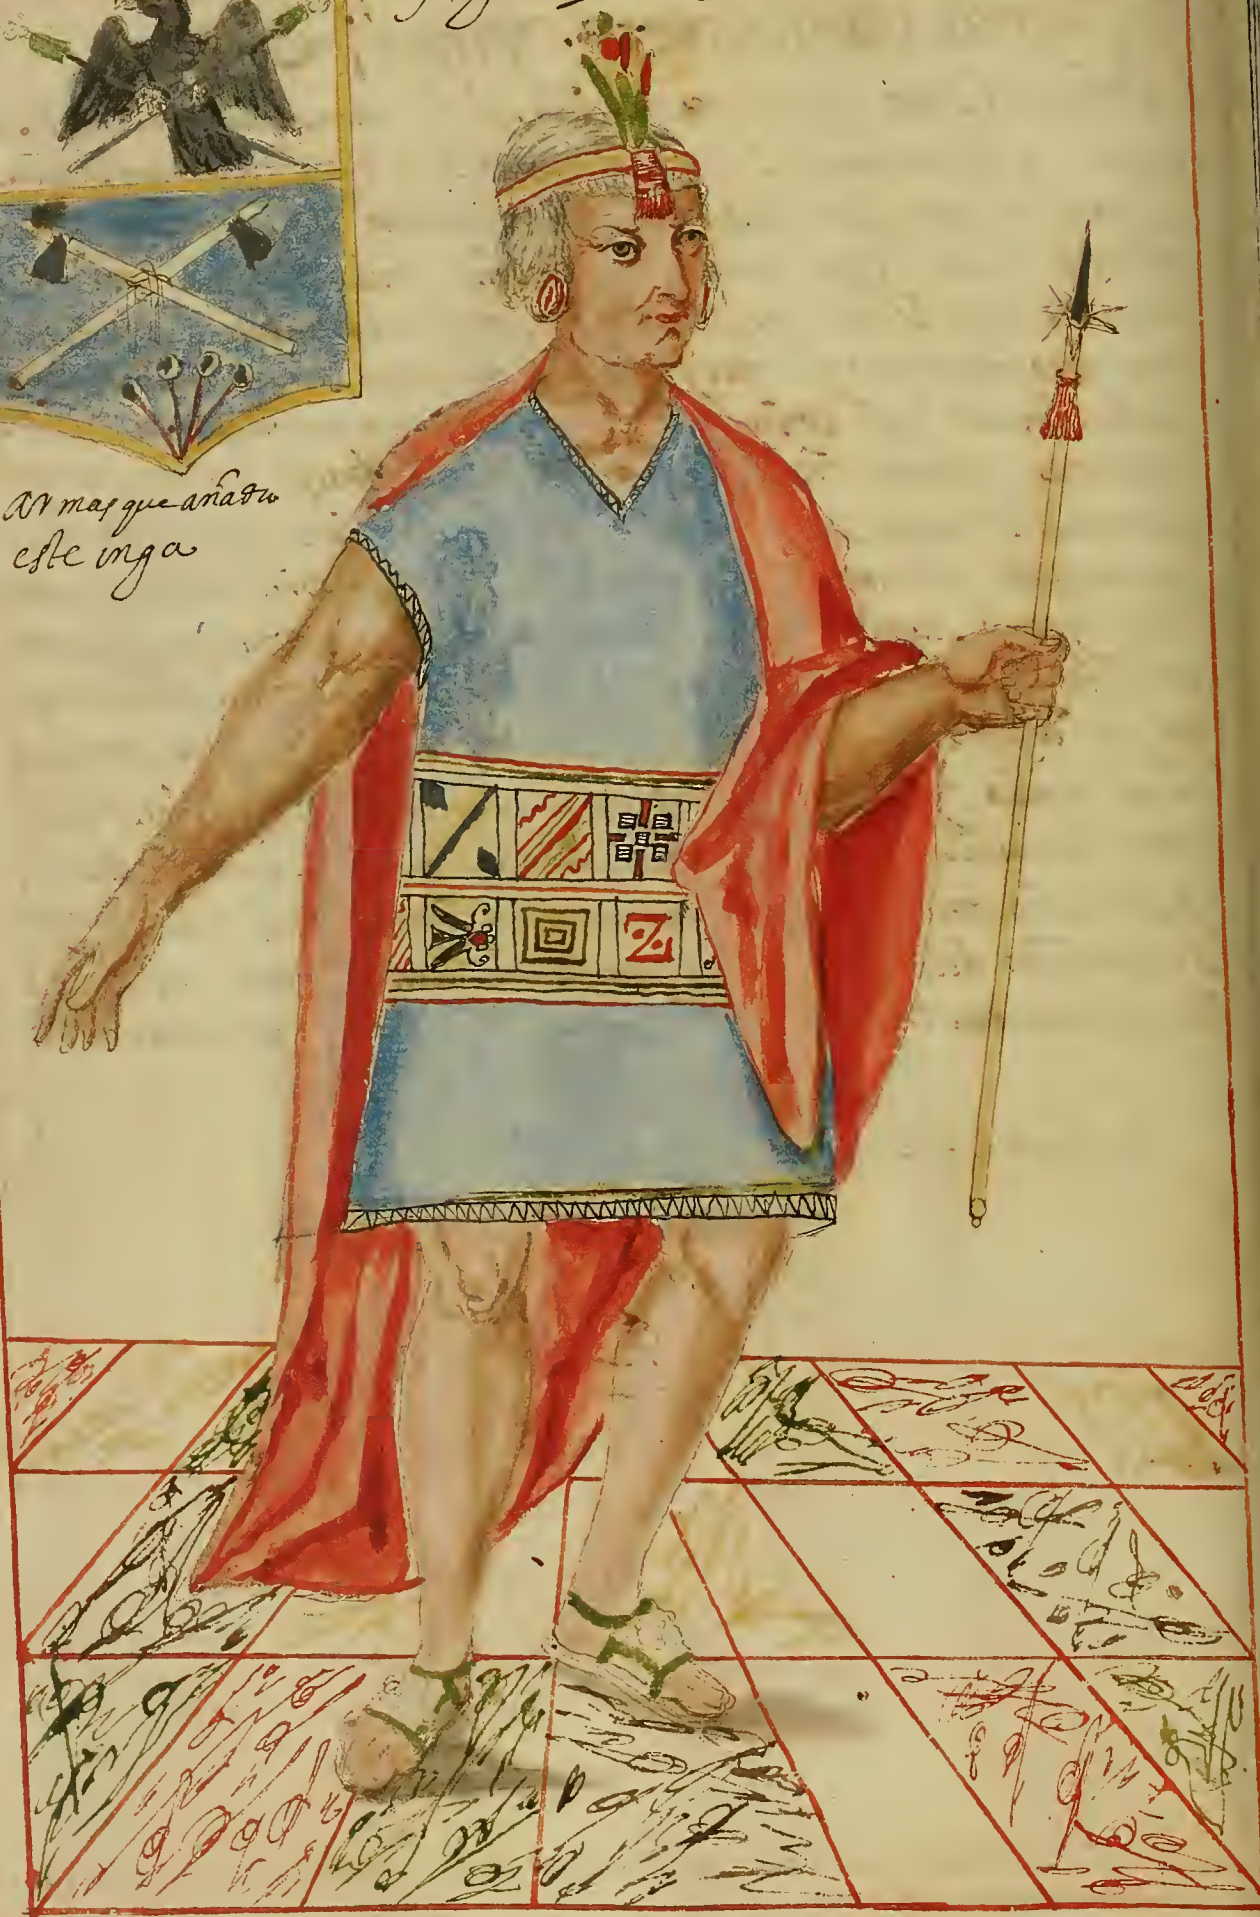 armas que añadio
este inga